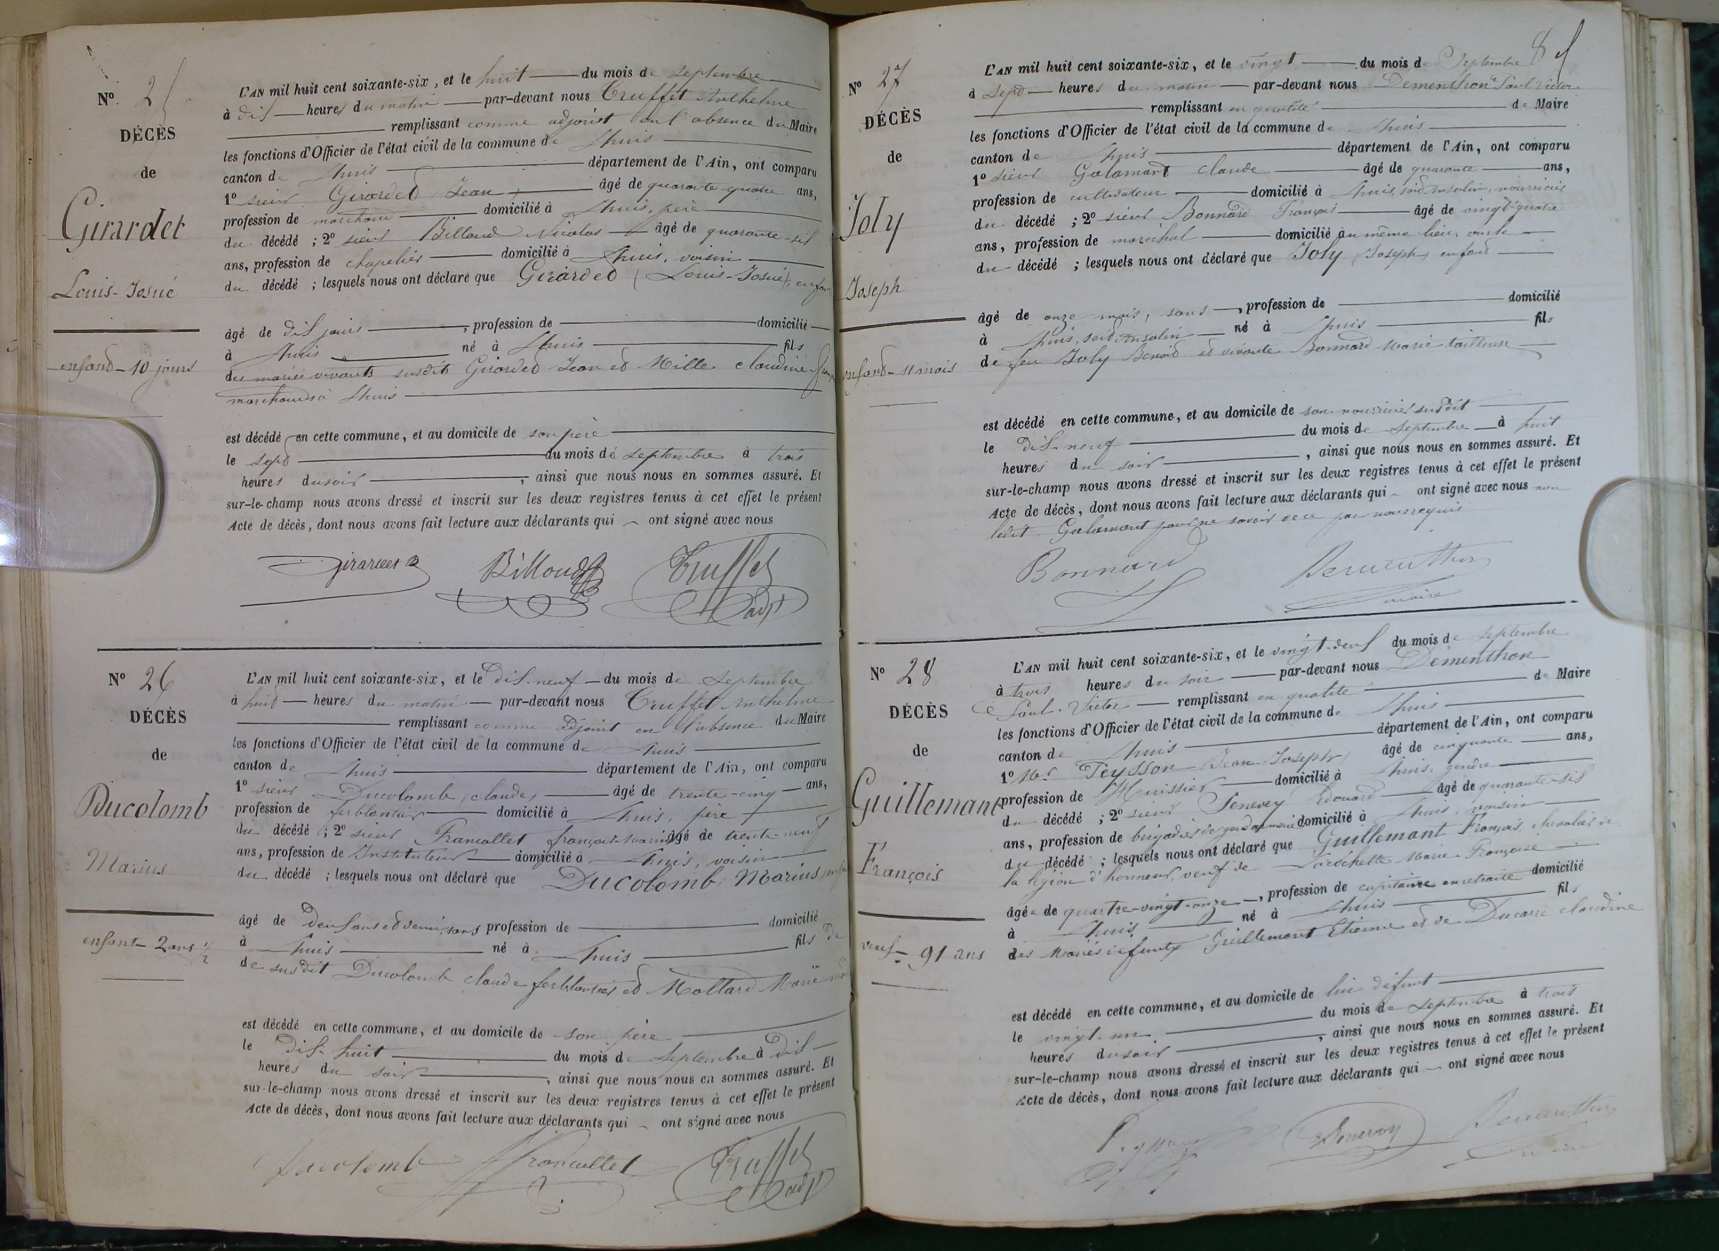 N° 25
DÉCÈS
de
Girardet
Louis-Josué
enfant - 10 jours
L'AN mil huit cent soixante-six, et le huit du mois de septembre
à dix heures du matin par-devant nous Truffet Anthelme
remplissant comme adjoint en l'absence du Maire
les fonctions d'Officier de l'état civil de la commune de Lhuis
canton de Lhuis département de l'Ain, ont comparu
1° sieur Girarded Jean âgé de quarante-quatre ans,
profession de marchand domicilié à Lhuis, père
du décédé ; 2° sieur Billoud Nicolas âgé de quarante-six
ans, profession de chapelier domicilié à Lhuis, voisin
du décédé ; lesquels nous ont déclaré que Girarded (Louis-Josué), enfant
âgé de dix jours, profession de domicilié
à Lhuis né à Lhuis fils
des mariés vivants susdit Girarded Jean et Mille claudine
marchands à Lhuis
est décédé en cette commune, et au domicile de son père
le sept du mois de septembre à trois
heures du soir, ainsi que nous nous en sommes assuré. Et
sur-le-champ nous avons dressé et inscrit sur les deux registres tenus à cet effet le présent
Acte de décès, dont nous avons fait lecture aux déclarants qui ont signé avec nous
Girardet Billoud Truffet
adjt
N° 26
DÉCÈS
de
Ducolomb
Marius
enfant - 2 ans 1/2
L'AN mil huit cent soixante-six, et le dix-neuf du mois de septembre
à huit heures du matin par-devant nous Truffet Anthelme
remplissant comme adjoint en l'absence du Maire
les fonctions d'Officier de l'état civil de la commune de Lhuis
canton de Lhuis département de l'Ain, ont comparu
1° sieur Ducolomb claude âgé de trente-cinq ans,
profession de ferblantier domicilié à Lhuis, père
du décédé ; 2° sieur Francallet françois-marie âgé de trente-neuf
ans, profession de Instituteur domicilié à Lhuis, voisin
du décédé ; lesquels nous ont déclaré que Ducolomb Marius
âgé de Deux ans et demi, sans profession de domicilié
à Lhuis né à Lhuis fils de
de susdit Ducolomb claude ferblantier et Mollard Marie
est décédé en cette commune, et au domicile de son père
le dix-huit du mois de septembre à dix
heures du soir, ainsi que nous nous en sommes assuré. Et
sur-le-champ nous avons dressé et inscrit sur les deux registres tenus à cet effet le présent
Acte de décès, dont nous avons fait lecture aux déclarants qui ont signé avec nous
Ducolomb Francallet Truffet
adjt
N° 27
DÉCÈS
de
Joly
Joseph
enfant - 11 mois
L'AN mil huit cent soixante-six, et le vingt du mois de Septembre
à sept heures du matin par-devant nous Dementhon Paul Victor
remplissant en qualité de Maire
les fonctions d'Officier de l'état civil de la commune de Lhuis
canton de Lhuis département de l'Ain, ont comparu
1° sieur Galamant claude âgé de quarante ans,
profession de cultivateur domicilié à Lhuis, nourricier
du décédé ; 2° sieur Bonnard François âgé de vingt-quatre
ans, profession de maréchal domicilié au même lieu, oncle
du décédé ; lesquels nous ont déclaré que Joly Joseph enfant
âgé de onze mois, sans, profession de domicilié
à Lhuis né à Lhuis fils
de feu Joly Benoit et vivante Bonnard Marie tailleuse
est décédé en cette commune, et au domicile de son nourricier susdit
le dix-neuf du mois de septembre à huit
heures du soir, ainsi que nous nous en sommes assuré. Et
sur-le-champ nous avons dressé et inscrit sur les deux registres tenus à cet effet le présent
Acte de décès, dont nous avons fait lecture aux déclarants qui ont signé avec nous non
ledit Galamant pour ne savoir de ce par nous requis
Bonnard Dementhon
maire
N° 28
DÉCÈS
de
Guillemant
François
veuf - 91 ans
L'AN mil huit cent soixante-six, et le vingt-deux du mois de septembre
à trois heures du soir par-devant nous Dementhon
Paul-Victor remplissant en qualité de Maire
les fonctions d'Officier de l'état civil de la commune de Lhuis
canton de Lhuis département de l'Ain, ont comparu
1° Mr Peysson Jean-Joseph âgé de cinquante ans,
profession de Huissier domicilié à Lhuis, gendre
du décédé ; 2° sieur Senevey Edouard âgé de quarante-six
ans, profession de brigadier de gendarmerie domicilié à Lhuis, voisin
du décédé ; lesquels nous ont déclaré que Guillemant François, chevalier de
la légion d'honneur, veuf de Marie Françoise
âgé de quatre-vingt-onze, profession de capitaine en retraite domicilié
à Lhuis né à Lhuis fils
des mariés défunts Guillemant Etienne et de Ducarre claudine
est décédé en cette commune, et au domicile de lui défunt
le vingt-un du mois de septembre à trois
heures du soir, ainsi que nous nous en sommes assuré. Et
sur-le-champ nous avons dressé et inscrit sur les deux registres tenus à cet effet le présent
Acte de décès, dont nous avons fait lecture aux déclarants qui ont signé avec nous
Peysson Senevey Dementhon